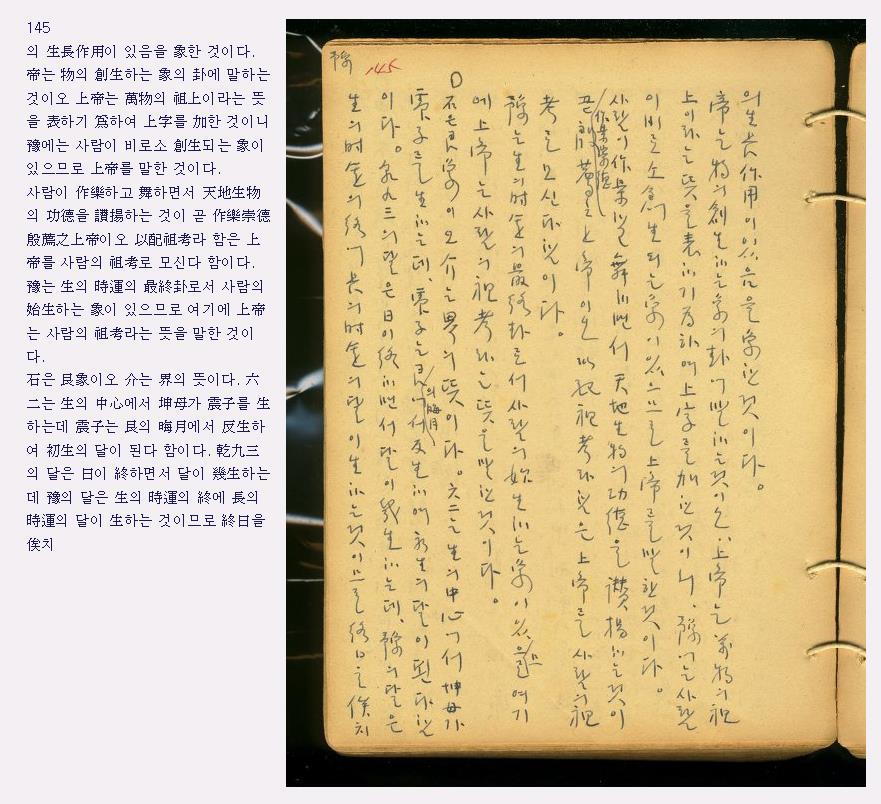 145
의 生長作用이 있음을 象한 것이다.
帝는 物의 創生하는 象의 卦에 말하는
것이오 上帝는 萬物의 祖上이라는 뜻
을 表하기 爲하여 上字를 加한 것이니
豫에는 사람이 비로소 創生되는 象이
있으므로 上帝를 말한 것이다.
사람이 作樂하고 舞하면서 天地生物
의 功德을 讚揚하는 것이 곧 作樂崇德
殷薦之上帝이오 以配祖考라 함은 上
帝를 사람의 祖考로 모신다 함이다.
豫는 生의 時運의 最終卦로서 사람의
始生하는 象이 있으므로 여기에 上帝
는 사람의 祖考라는 뜻을 말한 것이
다.
石은 艮象이오 介는 界의 뜻이다. 六
二는 生의 中心에서 坤母가 震子를 生
하는데 震子는 艮의 晦月에서 反生하
여 初生의 달이 된다 함이다. 乾九三
의 달은 日이 終하면서 달이 幾生하는
데 豫의 달은 生의 時運의 終에 長의
時運의 달이 生하는 것이므로 終日을
俟치
豫 145
의 生長作用이 있음을 象한 것이다.
帝는 物의 創生하는 象의 卦에 말하는 것이오 上帝는 萬物의 祖
上이라는 뜻을 表하기 爲하여 上字를 加한 것이니, 豫에는 사람
이 비로소 創生되는 象이 있으므로 上帝를 말한 것이다.
사람이 作樂하고 舞하면서 天地生物의 功德을 讚揚하는 것이
곧 作樂崇德 殷薦之上帝이오 以配祖考라 함은 上帝를 사람의 祖
考로 모신다 함이다.
豫는 生의 時運의 最終卦로서 사람의 始生하는 象이 있으므로 여기
에 上帝는 사람의 祖考라는 뜻을 말한 것이다.
石은 艮象이오 介는 界의 뜻이다. 六二는 生의 中心에서 坤母가
震子를 生하는데, 震子는 艮의 晦月에서 反生하여 初生의 달이 된다 함
이다. 乾九三의 달은 日이 終하면서 달이 幾生하는데, 豫의 달은
生의 時運의 終에 長의 時運의 달이 生하는 것이므로 終日을 俟치